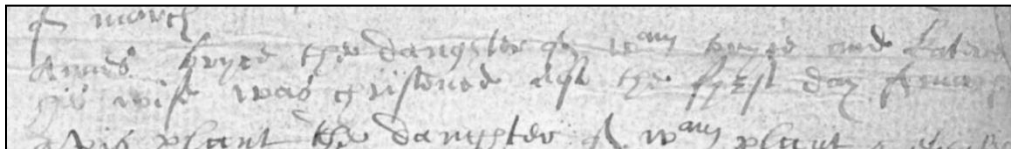 of march
Annes bryce the daughter of wam bryce and Kater
his wife was cristened also the fyrst day of marc
plant the daughter of wam plant